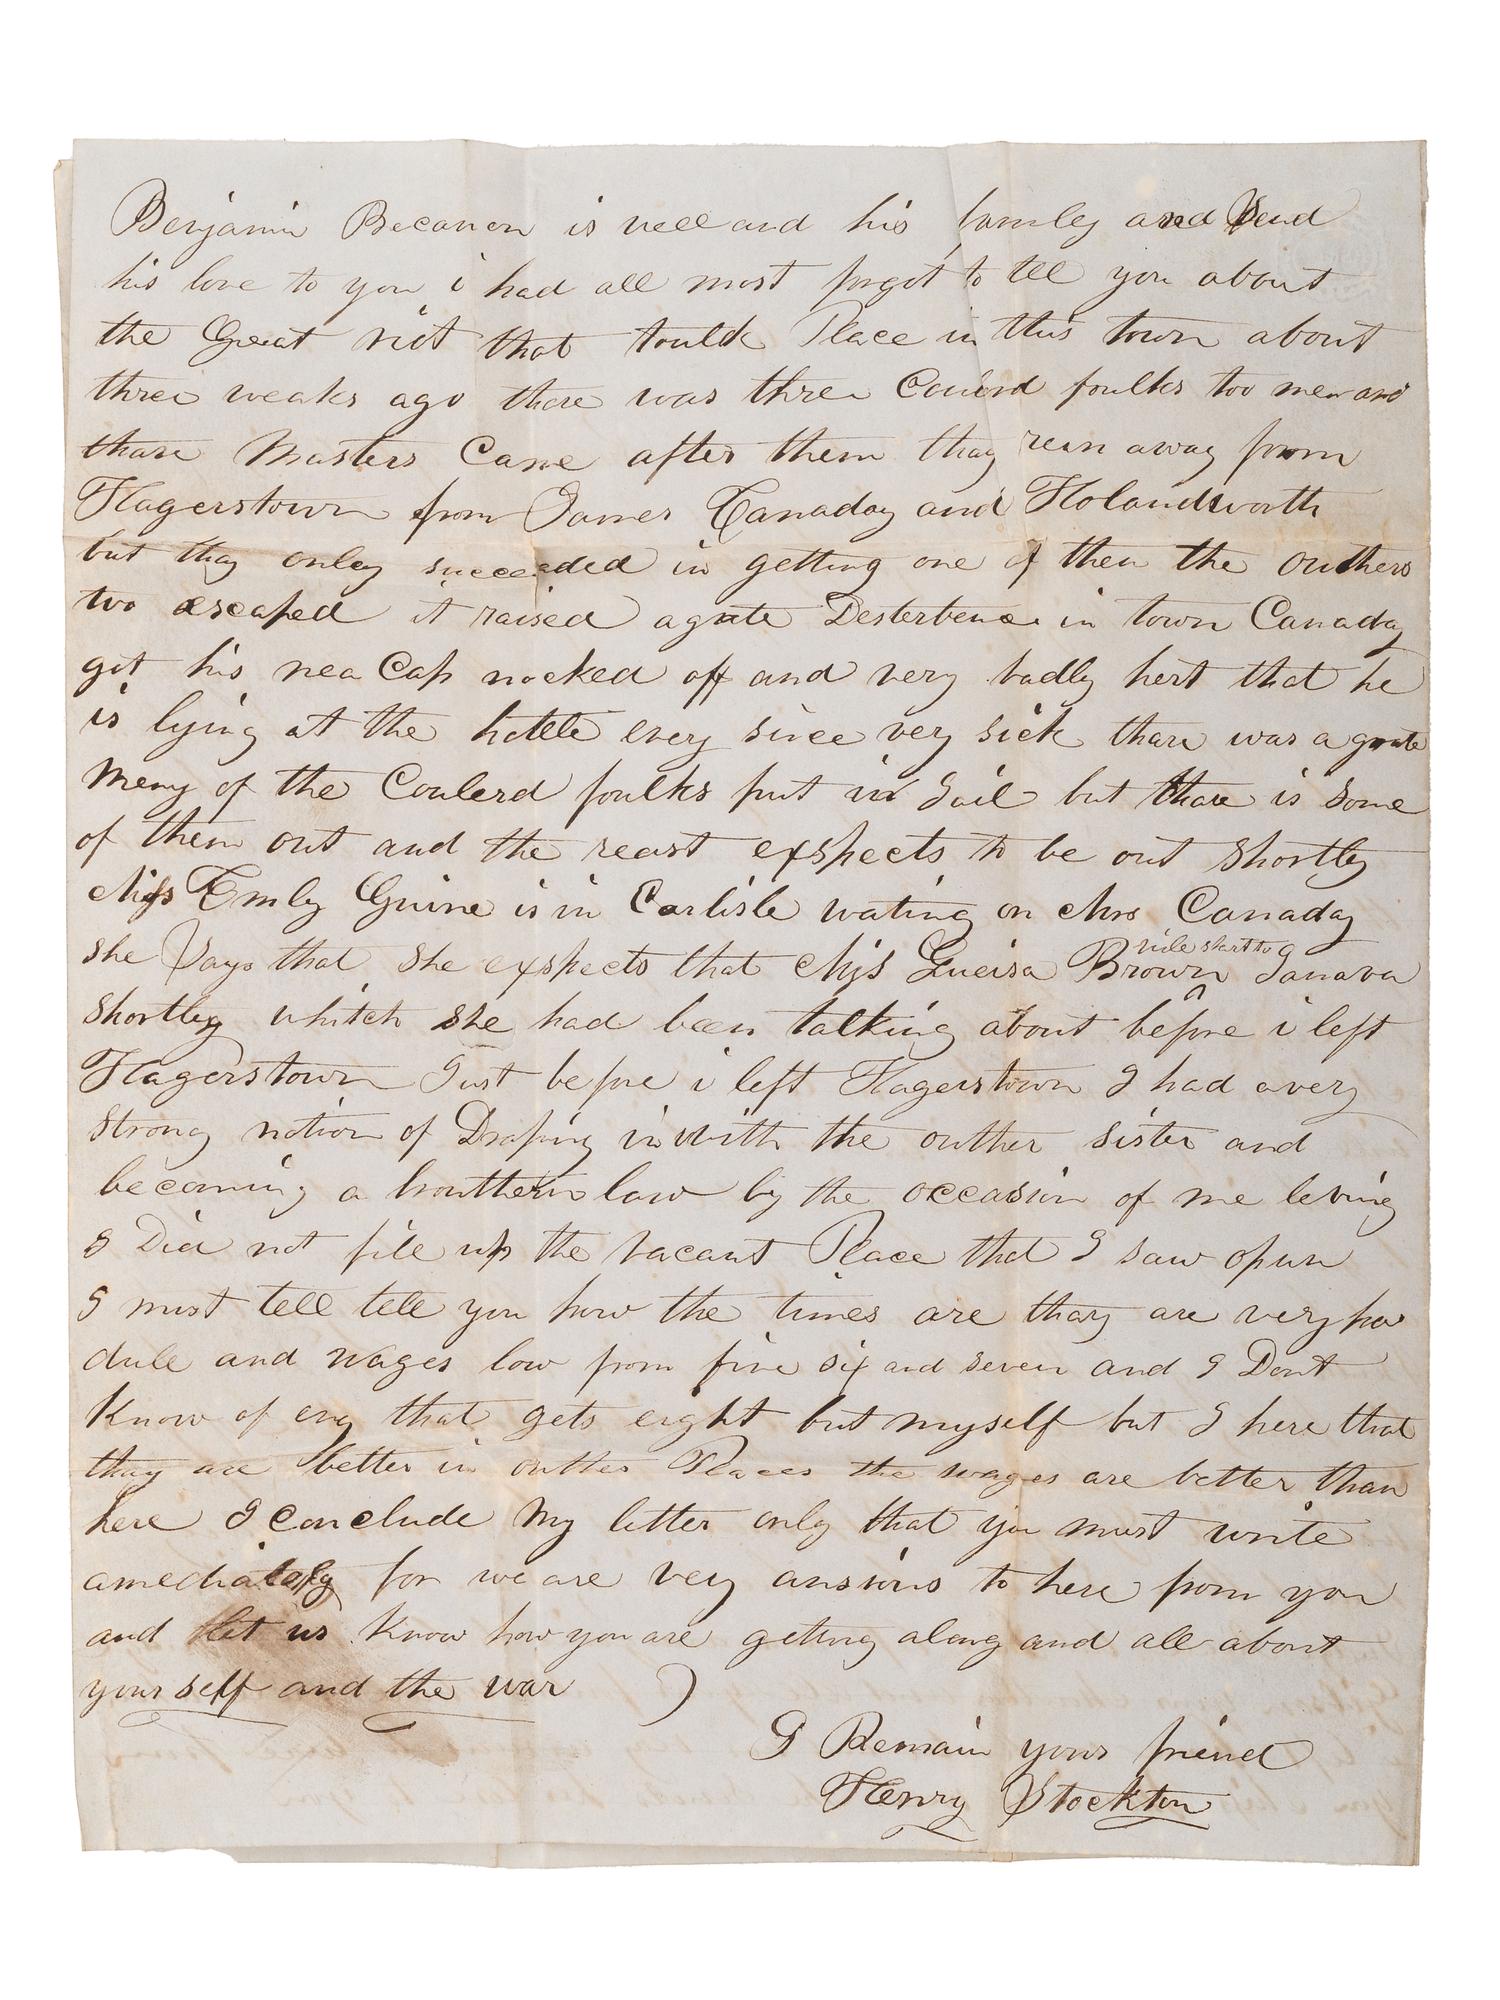 Benjamin Becanen is well and his famley and Send
his love to you i had all most forgot to tell you about
the Great riot that tould Place in this town about
three weaks ago there was three Coulerd foulks too men and
thare Masters Came after them thay run away from
Hagerstown from James Canaday and Holandsworth
but thay onley succeeded in getting one of then the outhers
two escaped it raised a grate Desterbence in town Canaday
got his nea Cap nocked off and very badly hert that he
is lying at the hotele every since very sick thare was a grate
Meny of the Coulerd foulks put in Jail but thare is some
of them out and the reast exspects to be out shortly
Miss Emly Guine is in Carlisle wating on Mrs Canaday
she Says that she exspects that Miss Lueisa Brown will start to Janava
shortley whitch she had been talking about before i left
Hagerstown Just before i left Hagerstown I had a very
strong notion of Draping in with the outher sister and
becoming a brouther in law by the occasion of me leving
I Did not file up the vacant Place that I saw opun
I must tell tell you how the times are thay are very
dule and wages low from five six and seven and I Dont
Know of eny that gets eight but myself but I here that
thay are better in outher Places the wages are better than
here I conclude My letter only that you must write
amediately for we are very ansious to here from you
and let us Know how you are getting along and all about
your self and the war
I Remain your friend
Henry Stockton